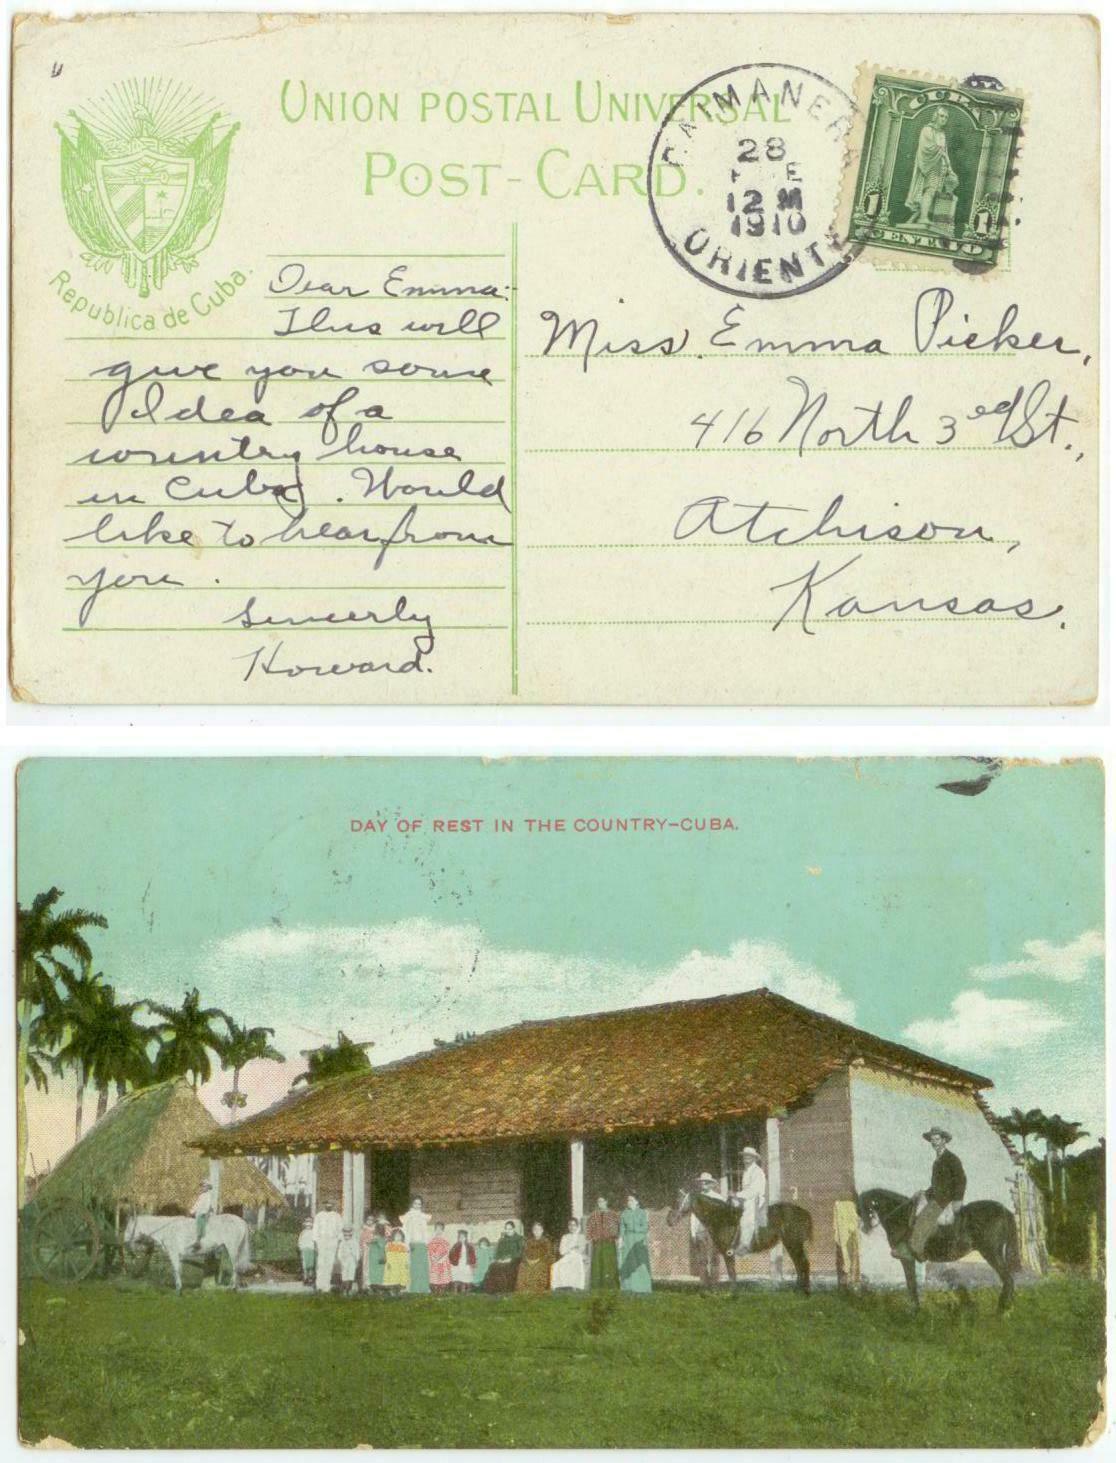 UNION POSTAL UNIVERSAL
POST-CARD.
Republica de Cuba.
CAIMANERA
28
E
12 M
1910
ORIENTE
CUBA
1 1
CENTAVO
Dear Emma:
This will
give you some
Idea of a
country house
in Cuba. Would
like to hear from
you.
Sincerly
Howard.
Miss. Emma Picker,
416 North 3rd St.,
Atchison,
Kansas.
DAY OF REST IN THE COUNTRY-CUBA.